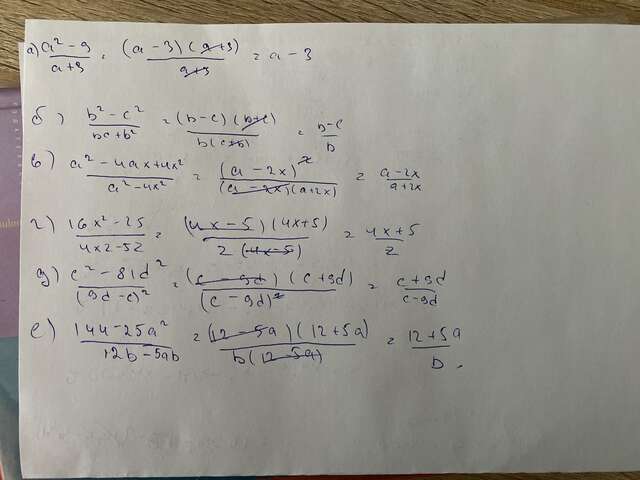 а) a² - 9 / a + 3 = (a - 3)(a + 3) / a + 3 = a - 3
б) b² - c² / bc + b² = (b - c)(b + c) / b(c + b) = b - c / b
в) a² - 4ax + 4x² / a² - 4x² = (a - 2x)² / (a - 2x)(a + 2x) = a - 2x / a + 2x
г) 16x² - 25 / 4xz - 5z = (4x - 5)(4x + 5) / z(4x - 5) = 4x + 5 / z
д) c² - 81d² / (9d - c)² = (c - 9d)(c + 9d) / (c - 9d)² = c + 9d / c - 9d
е) 144 - 25a² / 12b - 5ab = (12 - 5a)(12 + 5a) / b(12 - 5a) = 12 + 5a / b.